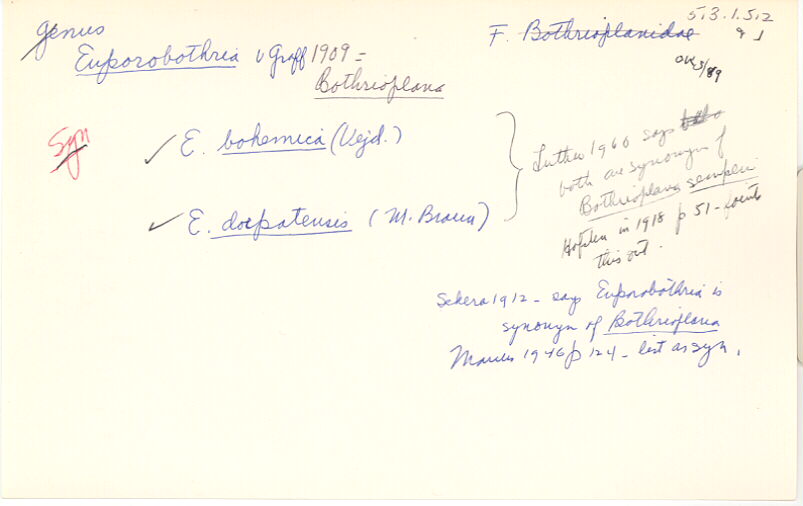 genus
5.3.1.5.2
F. Bothrioplanidae 9 1
Euporobothria v Graff 1909 =
OK 5/89
Bothrioplana
Syn
✓ E. bohemica (Vejd.)
✓ E. dorpatensis (M. Braun)
Luther 1960 says
both are synonym of
Bothrioplana semperi
Hofsten in 1918 p 51 - points
this out.
1912 - says Euporobothria is
synonym of Bothrioplana
Marcus 1946 p 124 - list as syn.